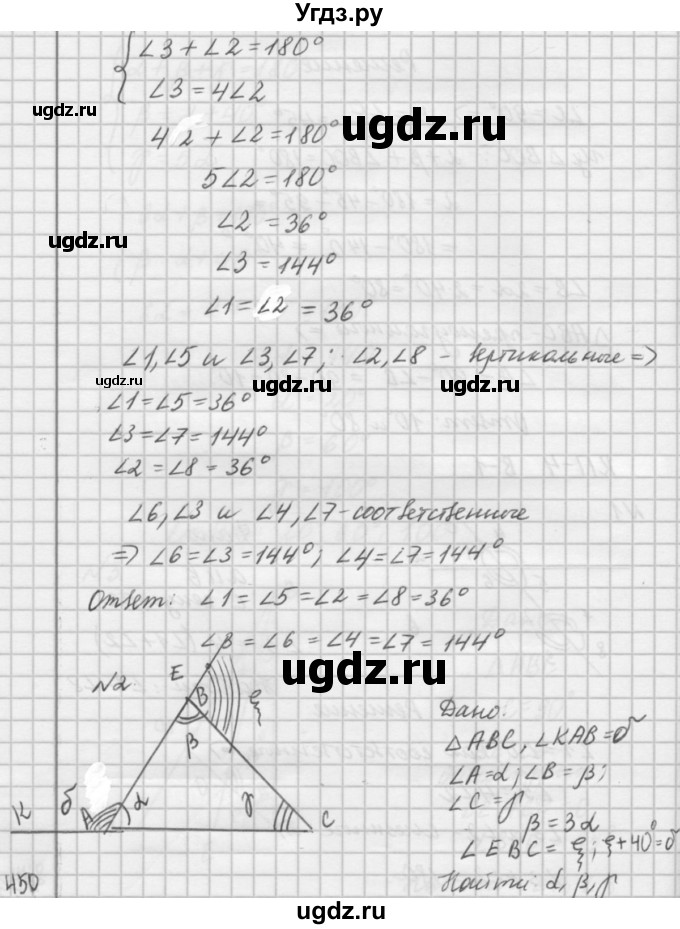 Угдз.ру
∠3 + ∠2 = 180°
∠3 = 4∠2
ugdz.ru
4 2 + ∠2 = 180°
ugdz.ru
5∠2 = 180°
∠2 = 36°
ugdz.ru
∠3 = 144°
∠1 = ∠2 = 36°
∠1, ∠5 и ∠3, ∠7; ∠2, ∠8 - вертикальные =>
ugdz.ru ugdz.ru ugdz.ru
∠1 = ∠5 = 36°
∠3 = ∠7 = 144°
∠2 = ∠8 = 36°
∠6, ∠3 и ∠4, ∠7 - соответственные
=> ∠6 = ∠3 = 144°; ∠4 = ∠7 = 144°
Ответ: ∠1 = ∠5 = ∠2 = ∠8 = 36°
∠3 = ∠6 = ∠4 = ∠7 = 144°
ugdz.ru
N2
E
B
ξ
β
K
δ
A
α
γ
C
Дано:
△ABC, ∠KAB = δ
∠A = α; ∠B = β;
∠C = γ
β = 3α
∠EBC = ξ; ξ + 40° = δ
Найти: α, β, γ
450
ugdz.ru ugdz.ru ugdz.ru